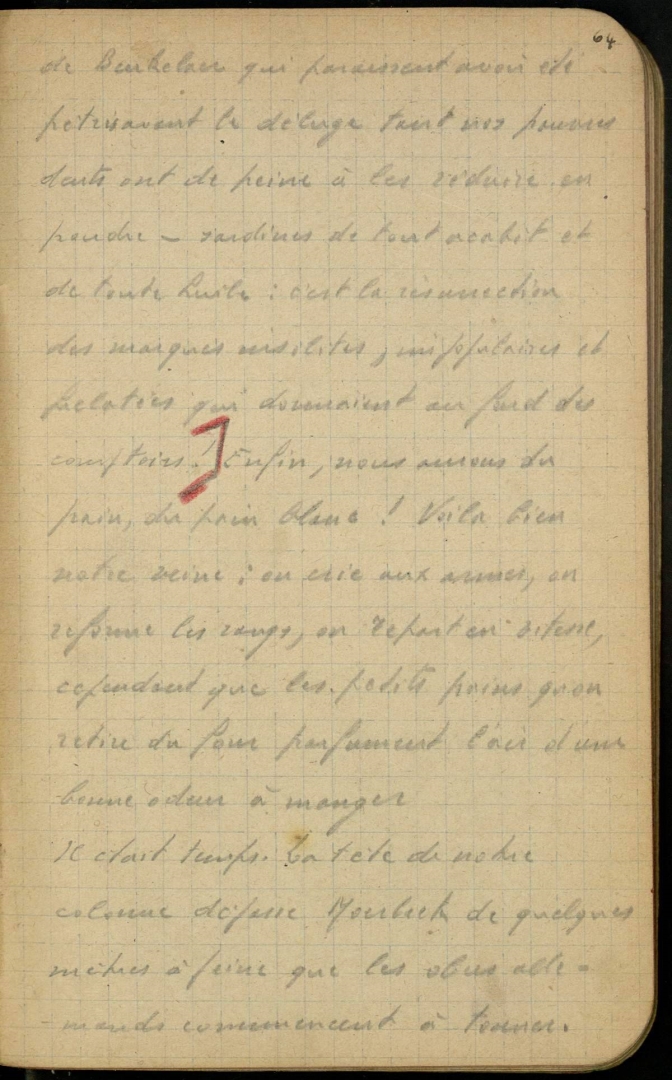 64
de Berkelaer qui paraissent avoir été
pétris avant le déluge tant nos pauvres
dents ont de peine à les réduire en
poudre – sardines de tout acabit et
de toute huile : c'est la résurrection
des marques inusitées, impopulaires et
frelatées qui dormaient au fond des
comptoirs ! Enfin, nous aurons du
pain, du pain blanc ! Voilà bien
notre veine : on crie aux armes, on
reforme les rangs, on repart en vitesse,
cependant que les petits pains qu'on
retire du four parfument l'air d'une
bonne odeur à manger
Il était temps. La tête de notre
colonne dépasse de quelques
mètres à peine que les obus alle-
mands commencent à tonner.